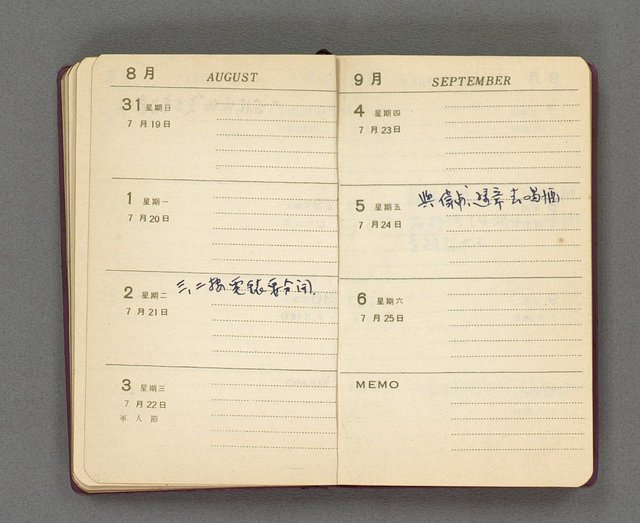 8 月 AUGUST
31 星期日
7 月 19 日
1 星期一
7 月 20 日
2 星期二
7 月 21 日
三、二接
3 星期三
7 月 22 日
軍人節
9 月 SEPTEMBER
4 星期四
7 月 23 日
5 星期五
7 月 24 日
與偉 去喝酒
6 星期六
7 月 25 日
MEMO